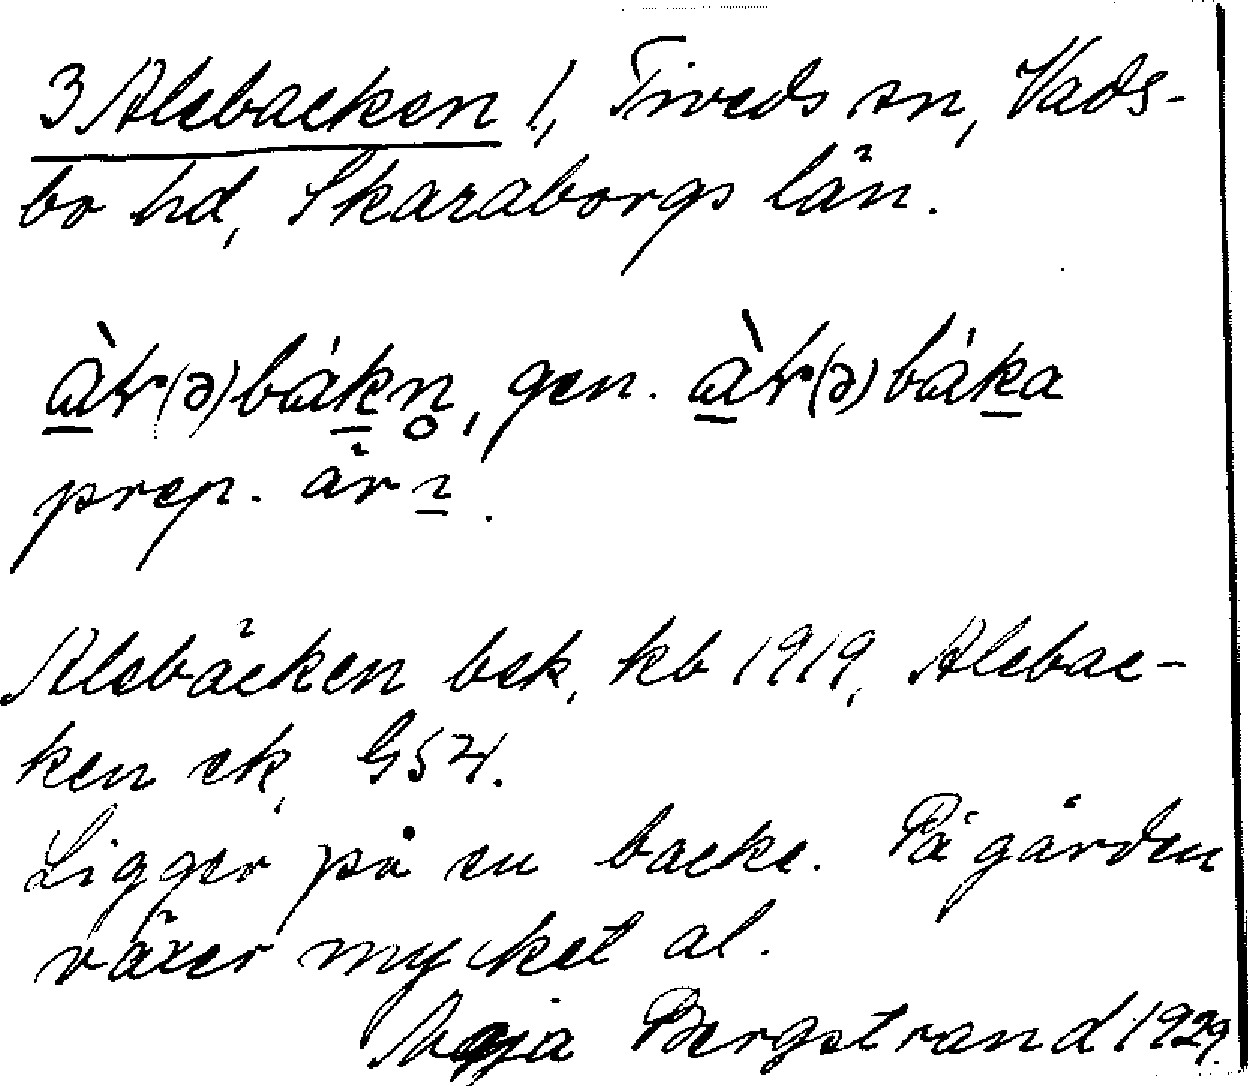 3 Alebacken l., Tiveds sn, Vads-
bo hd, Skaraborgs län.
prep. är ı.
Alebäcken bek, kb 1919, Alebac-
ken ek, G54.
Ligger på en backe. På gården
växer mycket al.
Maja Bergstrand 1929